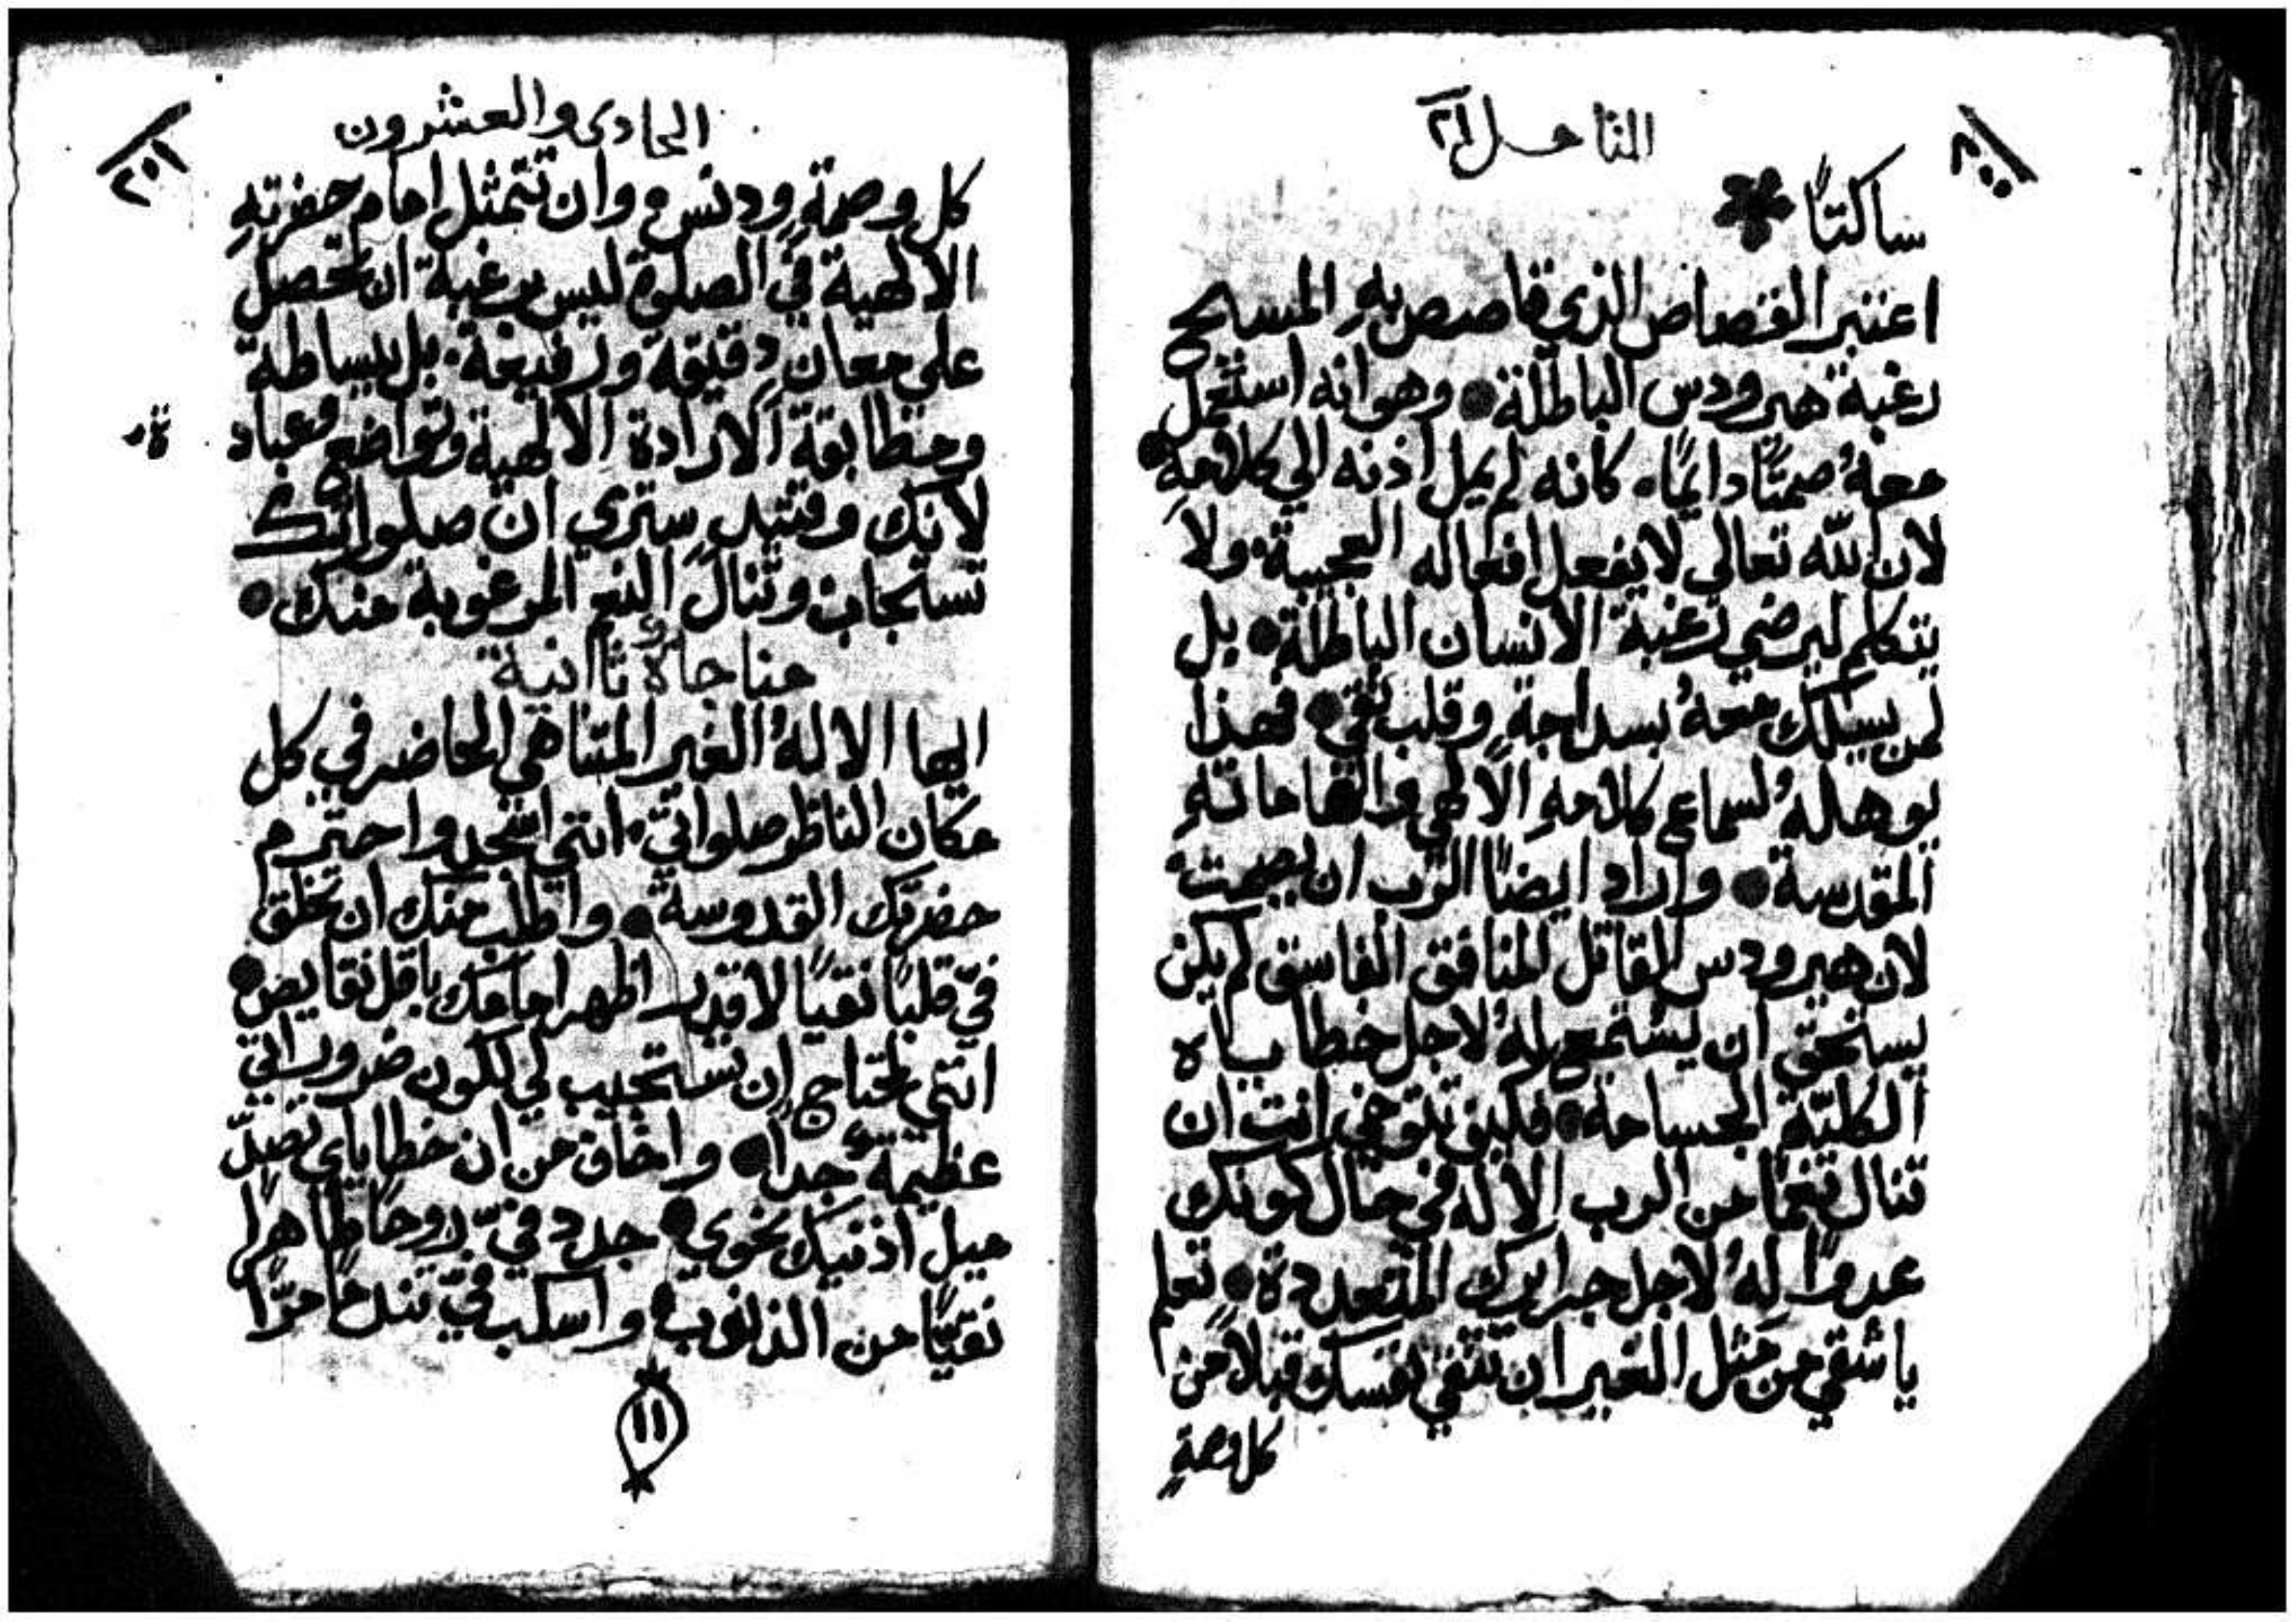 ٢٠٠
التامل ٢١
ساكتًا
اعتبر القصاص الذي قاصص بهِ المسيح
رغبة هيرودس الباطلة • وهو انه استعمل
معهُ صمتًا دايمًا. كانه لم يمل اذنه الي كلامهِ •
لان الله تعالي لا يفعل افعاله العجيبة. ولا
يتكلم ليرضي رغبة الانسان الباطلة • بل
لمن يسلك معهُ بسداجةٍ وقلب نقي • فهذا
يوهلهُ لسماع كلامهِ الالهي والهاماتهِ
المقدسة • واراد ايضًا الرب ان يصمت
لان هيرودس القاتل المنافق الفاسق لم يكن
يستحق ان يستمع لهُ لاجل خطاياه
الكليّة الجسامة • فكيف ترتجي انت ان
تنال نعمًا من الرب الاله في حال كونك
عدوًا لهُ لاجل جرايرك المتعددة • تعلم
يا شقي من مثل الغير ان تنقي نفسك قبلًا من
كل وصمةٍ
٢٠١
الحادى والعشرون
كل وصمةٍ ودنس. وان تتمثل امام حضرتهِ
الالهية في الصلوة ليس برغبة ان تحصل
علي معانٍ دقيقة ورفيعة. بل ببساطة
ومطابقة الارادة الالهية وتواضع وعباد
ة
لانك وقتيدٍ ستري ان صلواتك
تستجاب وتنال النعم المرغوبة منك •
مناجاة ثاانية
ايها الالهُ الغير المتناهي الحاضر في كل
مكان الناظر صلواتي. انني اسجد واحترم
حضرتك القدوسة • واطلب منك ان تخلق
فيّ قلبًا نقيًا لاقدر اظهر امامك باقل نقايض •
انني محتاج ان تستجيب لي لكون ضروراتي
عظيمة جدًا • واخاف من ان خطاياي تصدّ
ميل اذنيك نحوي • جدد فيّ روحًا طاهرًا
نقيًا من الذنوب • واسكب فيّ ندمًا مرًّا
١١